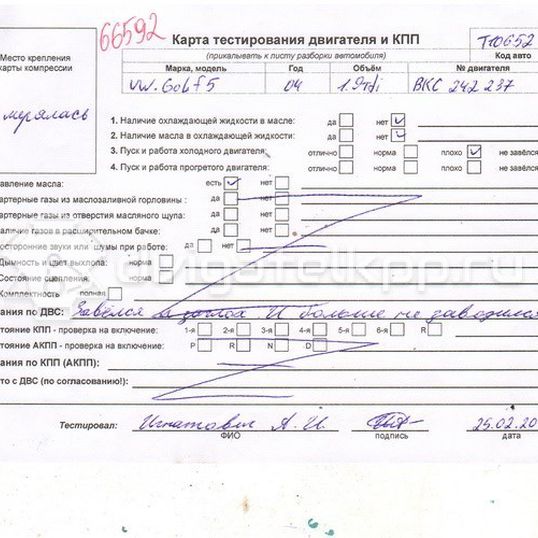 66592 Карта тестирования двигателя и КПП Т10652
(прикалывать к листу разборки автомобиля) Код авто
Место крепления Марка, модель Год Объём № двигателя
карты компрессии VW. Golf 5 04 1.9tdi BKC 242 237
мерялась
1. Наличие охлаждающей жидкости в масле: да нет
2. Наличие масла в охлаждающей жидкости: да нет
3. Пуск и работа холодного двигателя: отлично норма плохо не завёлся
4. Пуск и работа прогретого двигателя: отлично норма плохо не завёлся
авление масла: есть нет
артерные газы из маслозаливной горловины : да нет
артерные газы из отверстия масляного щупа: да нет
аличие газов в расширительном бачке: да нет
осторонние звуки или шумы при работе: да нет
Дымность и цвет выхлопа: норма
Состояние сцепления: норма
Комплектность полная
dvigatelkpp.ru
ания по ДВС: Завёлся и заглох И больше не заводился
тояние КПП - проверка на включение: 1-я 2-я 3-я 4-я 5-я 6-я R
тояние АКПП - проверка на включение: P R N D
ания по КПП (АКПП):
то с ДВС (по согласованию!):
Тестировал: Игнатович А. И. 25.02.20
ФИО подпись дата